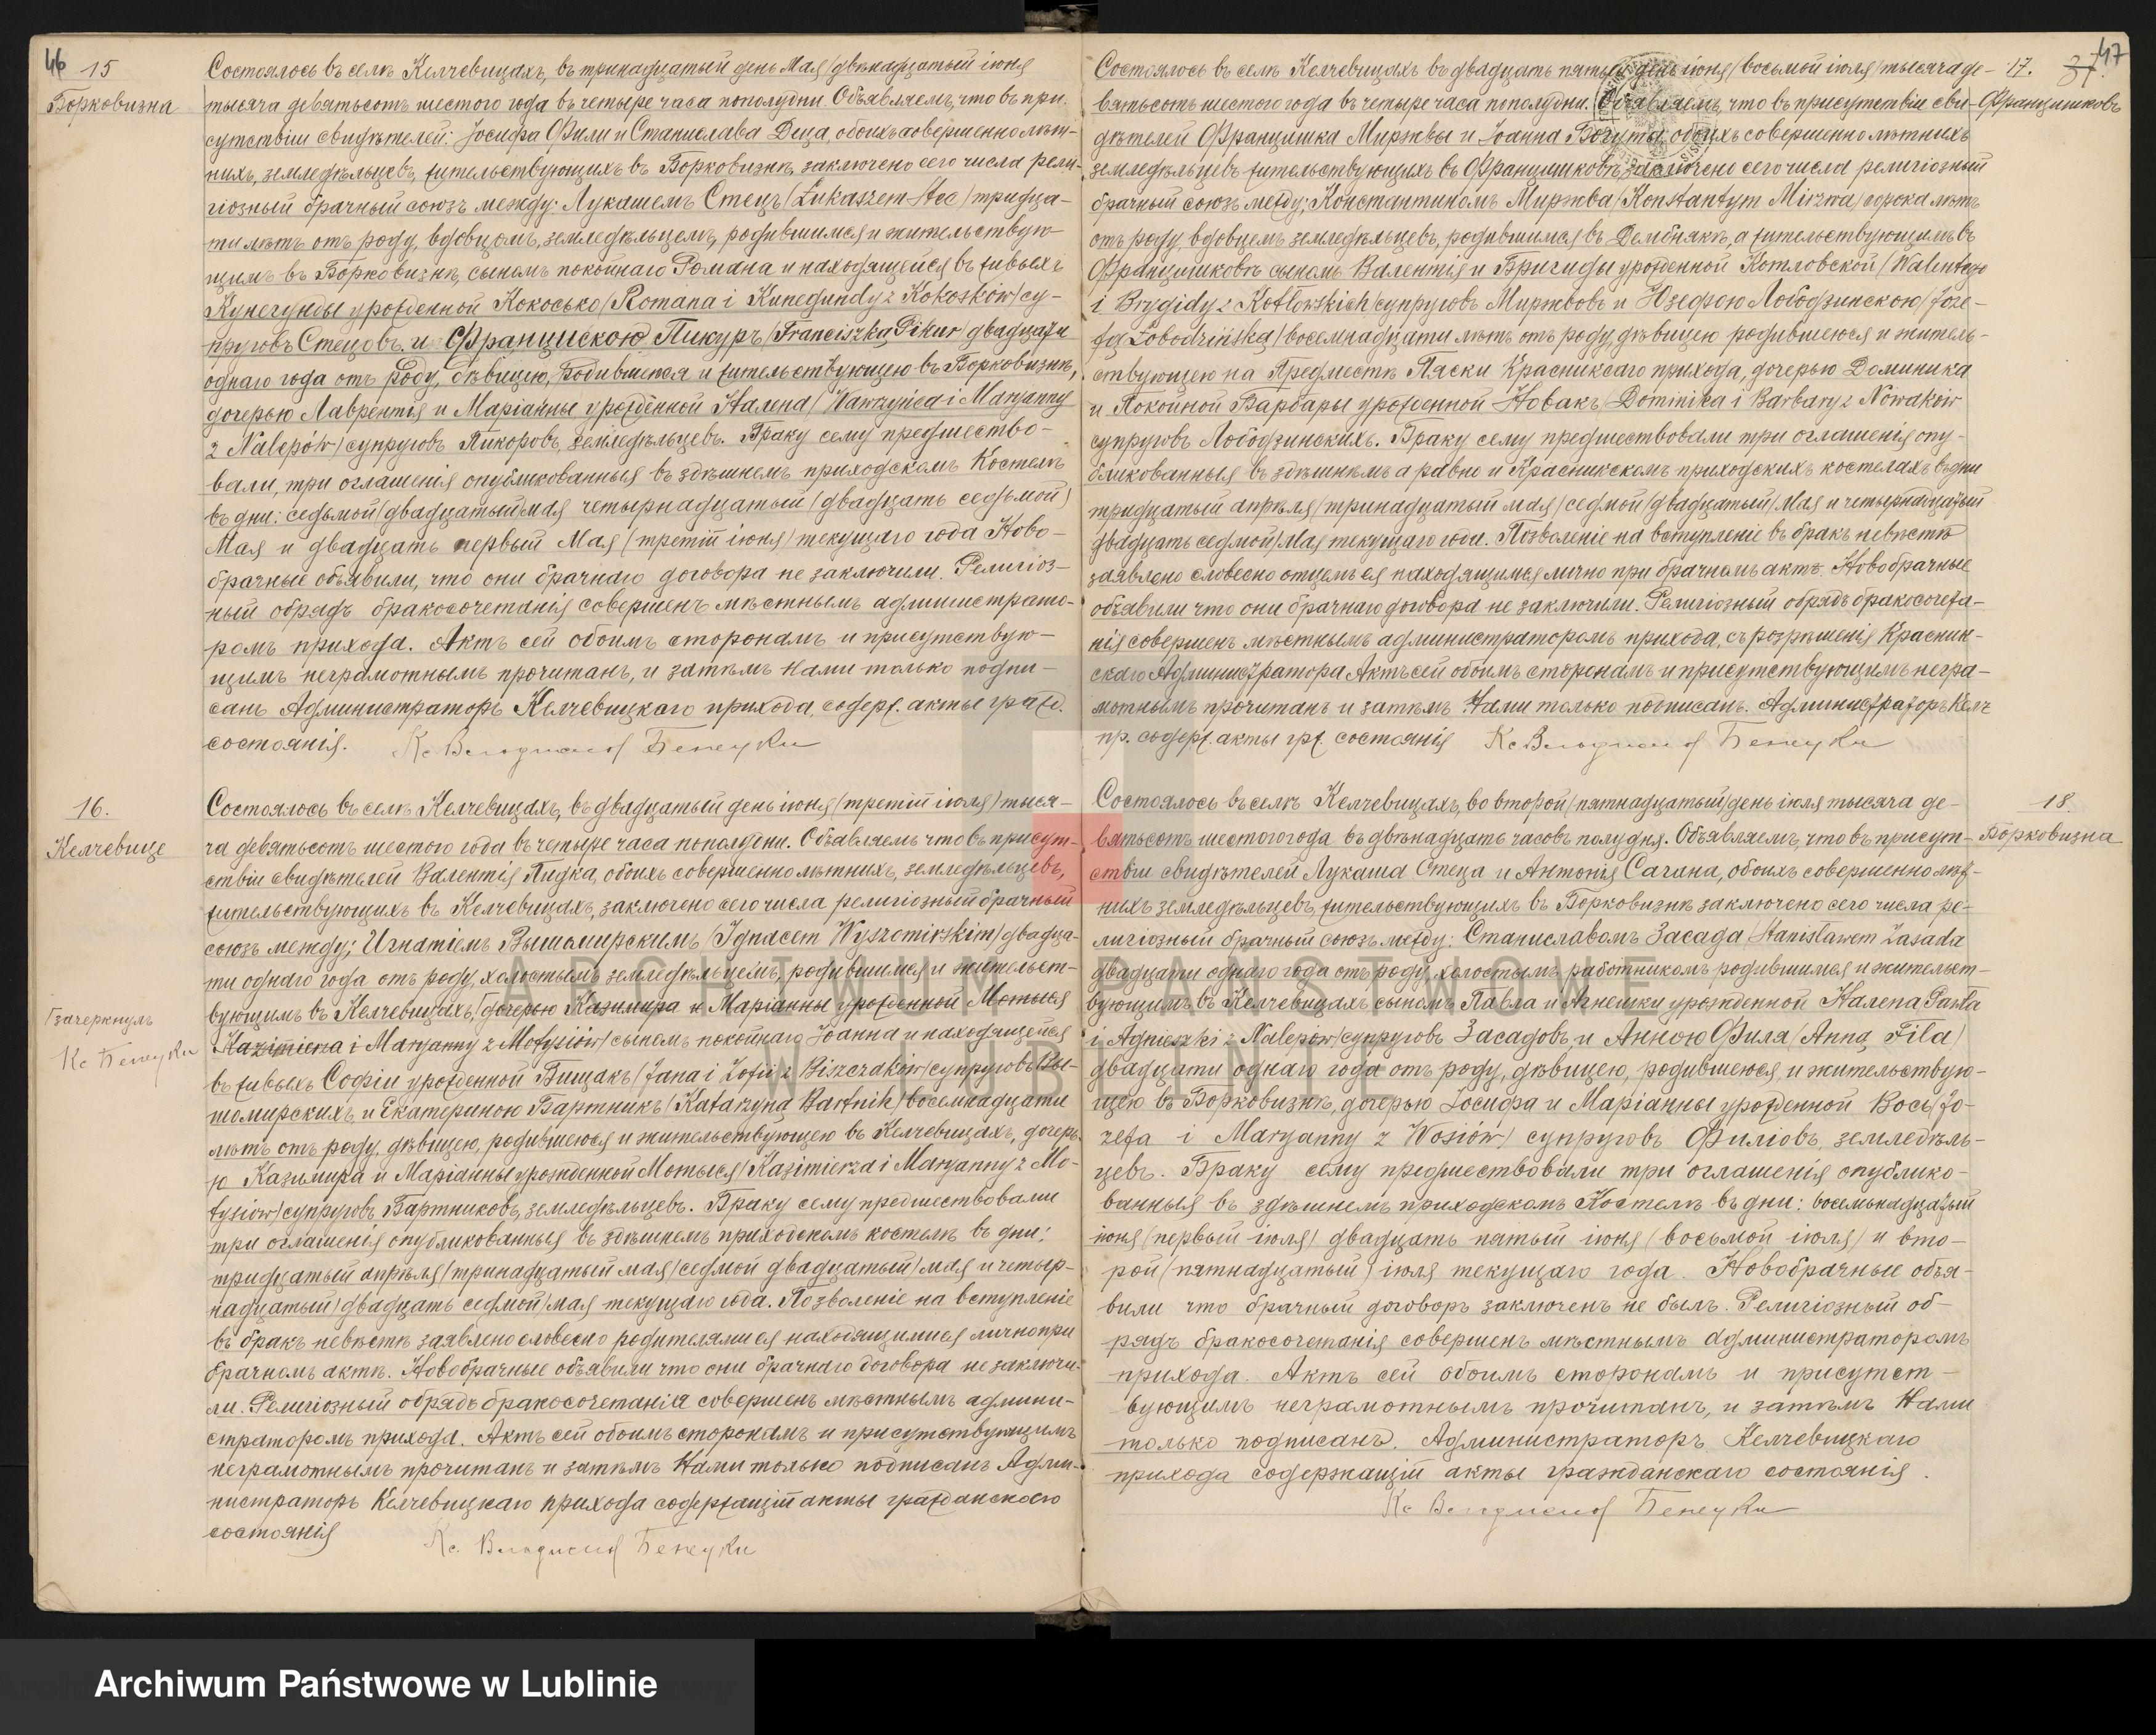 46
15
Борковизна
Состоялось въ селѣ Келчевицахъ, въ тринадцатый день Мая /двѣнадцатый іюня
тысяча девятьсотъ шестого года въ четыре часа пополудни. Объявляемъ, что въ при-
сутствіи свидѣтелей: Іосифа Фили и Станислава Деца, обоихъ совершеннолѣт-
нихъ, земледѣльцевъ, жительствующихъ въ Борковизнѣ, заключено сего числа рели-
гіозный брачный союзъ между: Лукашемъ Стецъ /Łukaszem Stec/ тридца-
ти лѣтъ отъ роду, вдовцомъ, земледѣльцемъ, родившимся и жительствую-
щимъ въ Борковизнѣ, сыномъ покойнаго Романа и находящейся въ живыхъ
Кунегунды урожденной Кокосько /Romana i Kunegundy z Kokosków/ су-
пруговъ Стецовъ. и Францискою Пикуръ /Franciszką Pikur/ двадцати
однаго года отъ роду, дѣвицею, родившеюся и жительствующею въ Борковизнѣ,
дочерью Лаврентія и Маріанны урожденной Налепа /Wawrzyńca i Maryanny
z Nalepów/ супруговъ Пикоровъ, земледѣльцевъ. Браку сему предшество-
вали, три оглашенія опубликованныя въ здѣшнемъ приходскомъ Костелѣ
въ дни: седьмой /двадцатый/ мая четырнадцатый /двадцать седьмой/
Мая и двадцать первый Мая /третій іюня/ текущаго года Ново-
брачные объявили, что они брачнаго договора не заключили. Религіоз-
ный обрядъ бракосочетанія совершенъ мѣстнымъ администрато-
ромъ прихода. Актъ сей обоимъ сторонамъ и присутствую-
щимъ неграмотнымъ прочитанъ, и затѣмъ Нами только подпи-
санъ Администраторъ Келчевицкаго прихода, содерж. акты гражд.
состоянія. Кс Владиславъ
16.
Келчевице
Состоялось въ селѣ Келчевицахъ, въ двадцатый день іюня /третій іюля/ тыся-
ча девятьсотъ шестого года въ четыре часа пополудни. Объявляемъ что въ присут-
ствіи свидѣтелей Валентія Пидка, обоихъ совершеннолѣтнихъ, земледѣльцевъ,
жительствующихъ въ Келчевицахъ, заключено сего числа религіозный брачный
союзъ между; Игнатіемъ Вышомирскимъ /Ignacem Wyszomirskim/ двадца-
ти однаго года отъ роду, холостымъ земледѣльцемъ, родившимся и жительст-
вующимъ въ Келчевицахъ, /дочерью Казимира и Маріанны урожденной Мотыся
Kazimierza i Maryanny z Motysiów/ сыномъ покойнаго Іоанна и находящейся
въ живыхъ Софіи урожденной Бищакъ /Jana i Zofii z Biszczaków/ супруговъ Вы-
шомирскихъ, и Екатериною Бартникъ /Katarzyną Bartnik/ восемнадцати
лѣтъ отъ роду, дѣвицею, родившеюся и жительствующею въ Келчевицахъ, дочерь-
ю Казимира и Маріанны урожденной Мотыся /Kazimierza i Maryanny z Mo-
tysiów/ супруговъ Бартниковъ, земледѣльцевъ. Браку сему предшествовали
три оглашенія опубликованныя въ здѣшнемъ приходскомъ костелѣ въ дни:
тридцатый апрѣля /тринадцатый мая/ седмой двадцатый/ мая и четыр-
надцатый /двадцать седмой/ мая текущаго года. Позволеніе на вступленіе
въ бракъ невѣстѣ заявлено словесно родителями ея находящимися лично при
брачномъ актѣ. Новобрачные объявили что они брачнаго договора не заключи-
ли. Религіозный обрядъ бракосочетанія совершенъ мѣстнымъ админи-
страторомъ прихода. Актъ сей обоимъ сторонамъ и присутствующимъ
неграмотнымъ прочитанъ и затѣмъ Нами только подписанъ Адми-
нистраторъ Келчевицкаго прихода содержащій акты гражданского
состоянія Кс. Владиславъ
зачеркнулъ
Кс
47
17.
Францишковъ
Состоялось въ селѣ Келчевицахъ въ двадцать пятый день іюня /восьмой іюля/ тысяча де-
вятьсотъ шестого года въ четыре часа пополудни. Объявляемъ, что въ присутствіи сви-
дѣтелей Францишка Миржвы и Іоанна Богута, обоихъ совершеннолѣтнихъ
земледѣльцевъ жительствующихъ въ Францишковѣ, заключено сего числа религіозный
брачный союзъ между; Константиномъ Миржва /Konstantym Mirzwa/ сорока лѣтъ
отъ роду, вдовцемъ земледѣльцевъ, родившимся въ Дембнякѣ, а жительствующимъ въ
Францишковѣ сыномъ Валентія и Бригиды урожденной Котловской /Walentego
i Brygidy z Kotłowskich/ супруговъ Миржвовъ и Юзефою Лободзинскою /Joze-
fą Łobodzińską/ восемнадцати лѣтъ отъ роду, дѣвицею родившеюся и житель-
ствующею на Предместѣ Пяски Красникскаго прихода, дочерью Доминика
и Покойной Варвары урожденной Новакъ /Dominika i Barbary z Nowaków
супруговъ Лободзинскихъ. Браку сему предшествовали три оглашенія опу-
бликованныя въ здѣшнемъ а равно и Красникскомъ приходскихъ костелахъ въ дни
тридцатый апрѣля /тринадцатый мая/ седмой /двадцатый/ мая и четырнадцатый
/двадцать седмой/ мая текущаго года. Позволеніе на вступленіе въ бракъ невѣстѣ
заявлено словесно отцемъ ея находящимся лично при брачномъ актѣ. Новобрачные
объявили что они брачнаго договора не заключили. Религіозный обрядъ бракосочета-
нія совершенъ мѣстнымъ администраторомъ прихода, съ розрѣшенія Красник-
скаго Администратора Актъ сей обоимъ сторонамъ и присутствующимъ негра-
мотнымъ прочитанъ и затѣмъ Нами только подписанъ. Администраторъ Келч
пр. содерж. акты грж. состоянія Кс Владиславъ
18
Борковизна
Состоялось въ селѣ Келчевицахъ, во второй /пятнадцатый/ день іюля тысяча де-
вятьсотъ шестого года въ двѣнадцать часовъ полудня. Объявляемъ, что въ присут-
ствіи свидѣтелей Лукаша Стеца и Антонія Сагана, обоихъ совершеннолѣт-
нихъ земледѣльцевъ, жительствующихъ въ Борковизнѣ заключено сего числа ре-
лигіозный брачный союзъ между: Станиславомъ Засада /Stanisławem Zasada
двадцати однаго года отъ роду, холостымъ работникомъ родившимся и жительст-
вующимъ въ Келчевицахъ сыномъ Павла и Агнешки урожденной Налепа Pawła
i Agnieszki z Nalepów/ супруговъ Засадовъ, и Анною Филя /Anną Fila/
двадцати однаго года отъ роду, дѣвицею, родившеюся, и жительствую-
щею въ Борковизнѣ, дочерью Іосифа и Маріанны урожденной Вось /Jo-
zefa i Maryanny z Wosiów/ супруговъ Филіовъ, земледѣль-
цевъ. Браку сему предшествовали три оглашенія опублико-
ванныя въ здѣшнемъ приходскомъ Костелѣ въ дни: восемьнадцатый
іюня /первый іюля/ двадцать пятый іюня /восьмой іюля/ и вто-
рой /пятнадцатый/ іюля текущаго года. Новобрачные объя-
вили что брачный договоръ заключенъ не былъ. Религіозный об-
рядъ бракосочетанія совершенъ мѣстнымъ администраторомъ
прихода. Актъ сей обоимъ сторонамъ и присутст-
вующимъ неграмотнымъ прочитанъ, и затѣмъ Нами
только подписанъ. Администраторъ Келчевицкаго
прихода содержащій акты гражданскаго состоянія.
Кс Владиславъ
ARCHIWUM PAŃSTWOWE
W LUBLINIE
Archiwum Państwowe w Lublinie